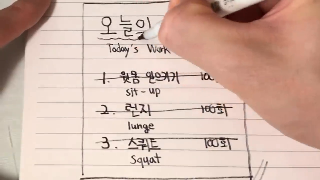 오늘의
Today's Work
1. 윗몸 일으키기 100
sit-up
2. 런지 100회
lunge
3. 스쿼트 100회
Squat